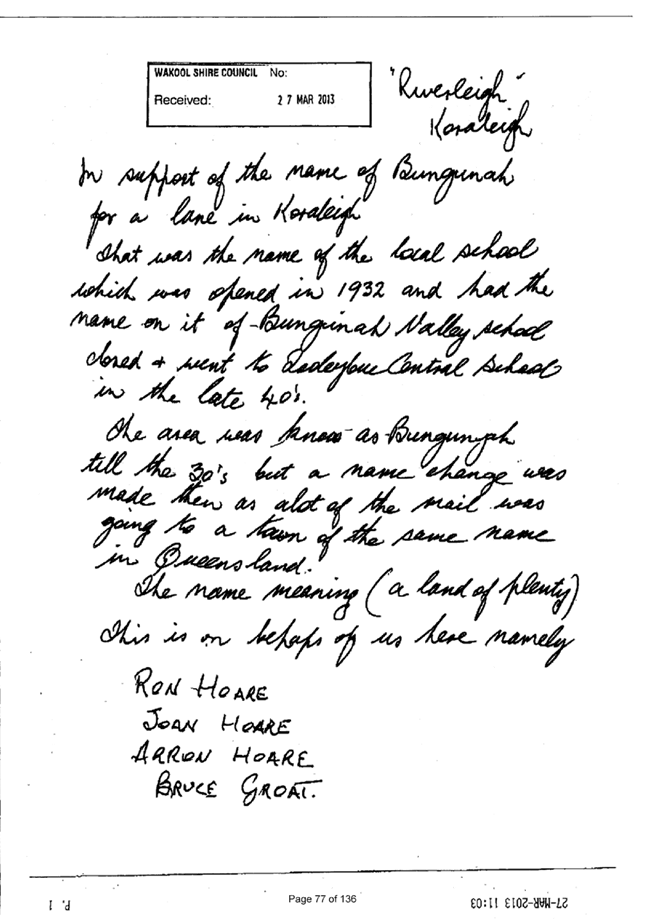 WAKOOL SHIRE COUNCIL No:
Received: 27 MAR 2013
"Riverleigh"
Koraleigh
In support of the name of Bungunah
for a lane in Koraleigh
That was the name of the local school
which was opened in 1932 and had the
name on it of - Bungunah Valley school
closed + went to Central School
in the late 40's.
The area was know as Bungunyah
till the 30's but a name change was
made then as alot of the mail was
going to a town of the same name
in Queensland.
The name meaning (a land of plenty)
This is on behaps of us here namely
RON HOARE
JOAN HOARE
ARRON HOARE
BRUCE GROAT.
P. 1
Page 77 of 136
27-MAR-2013 11:03